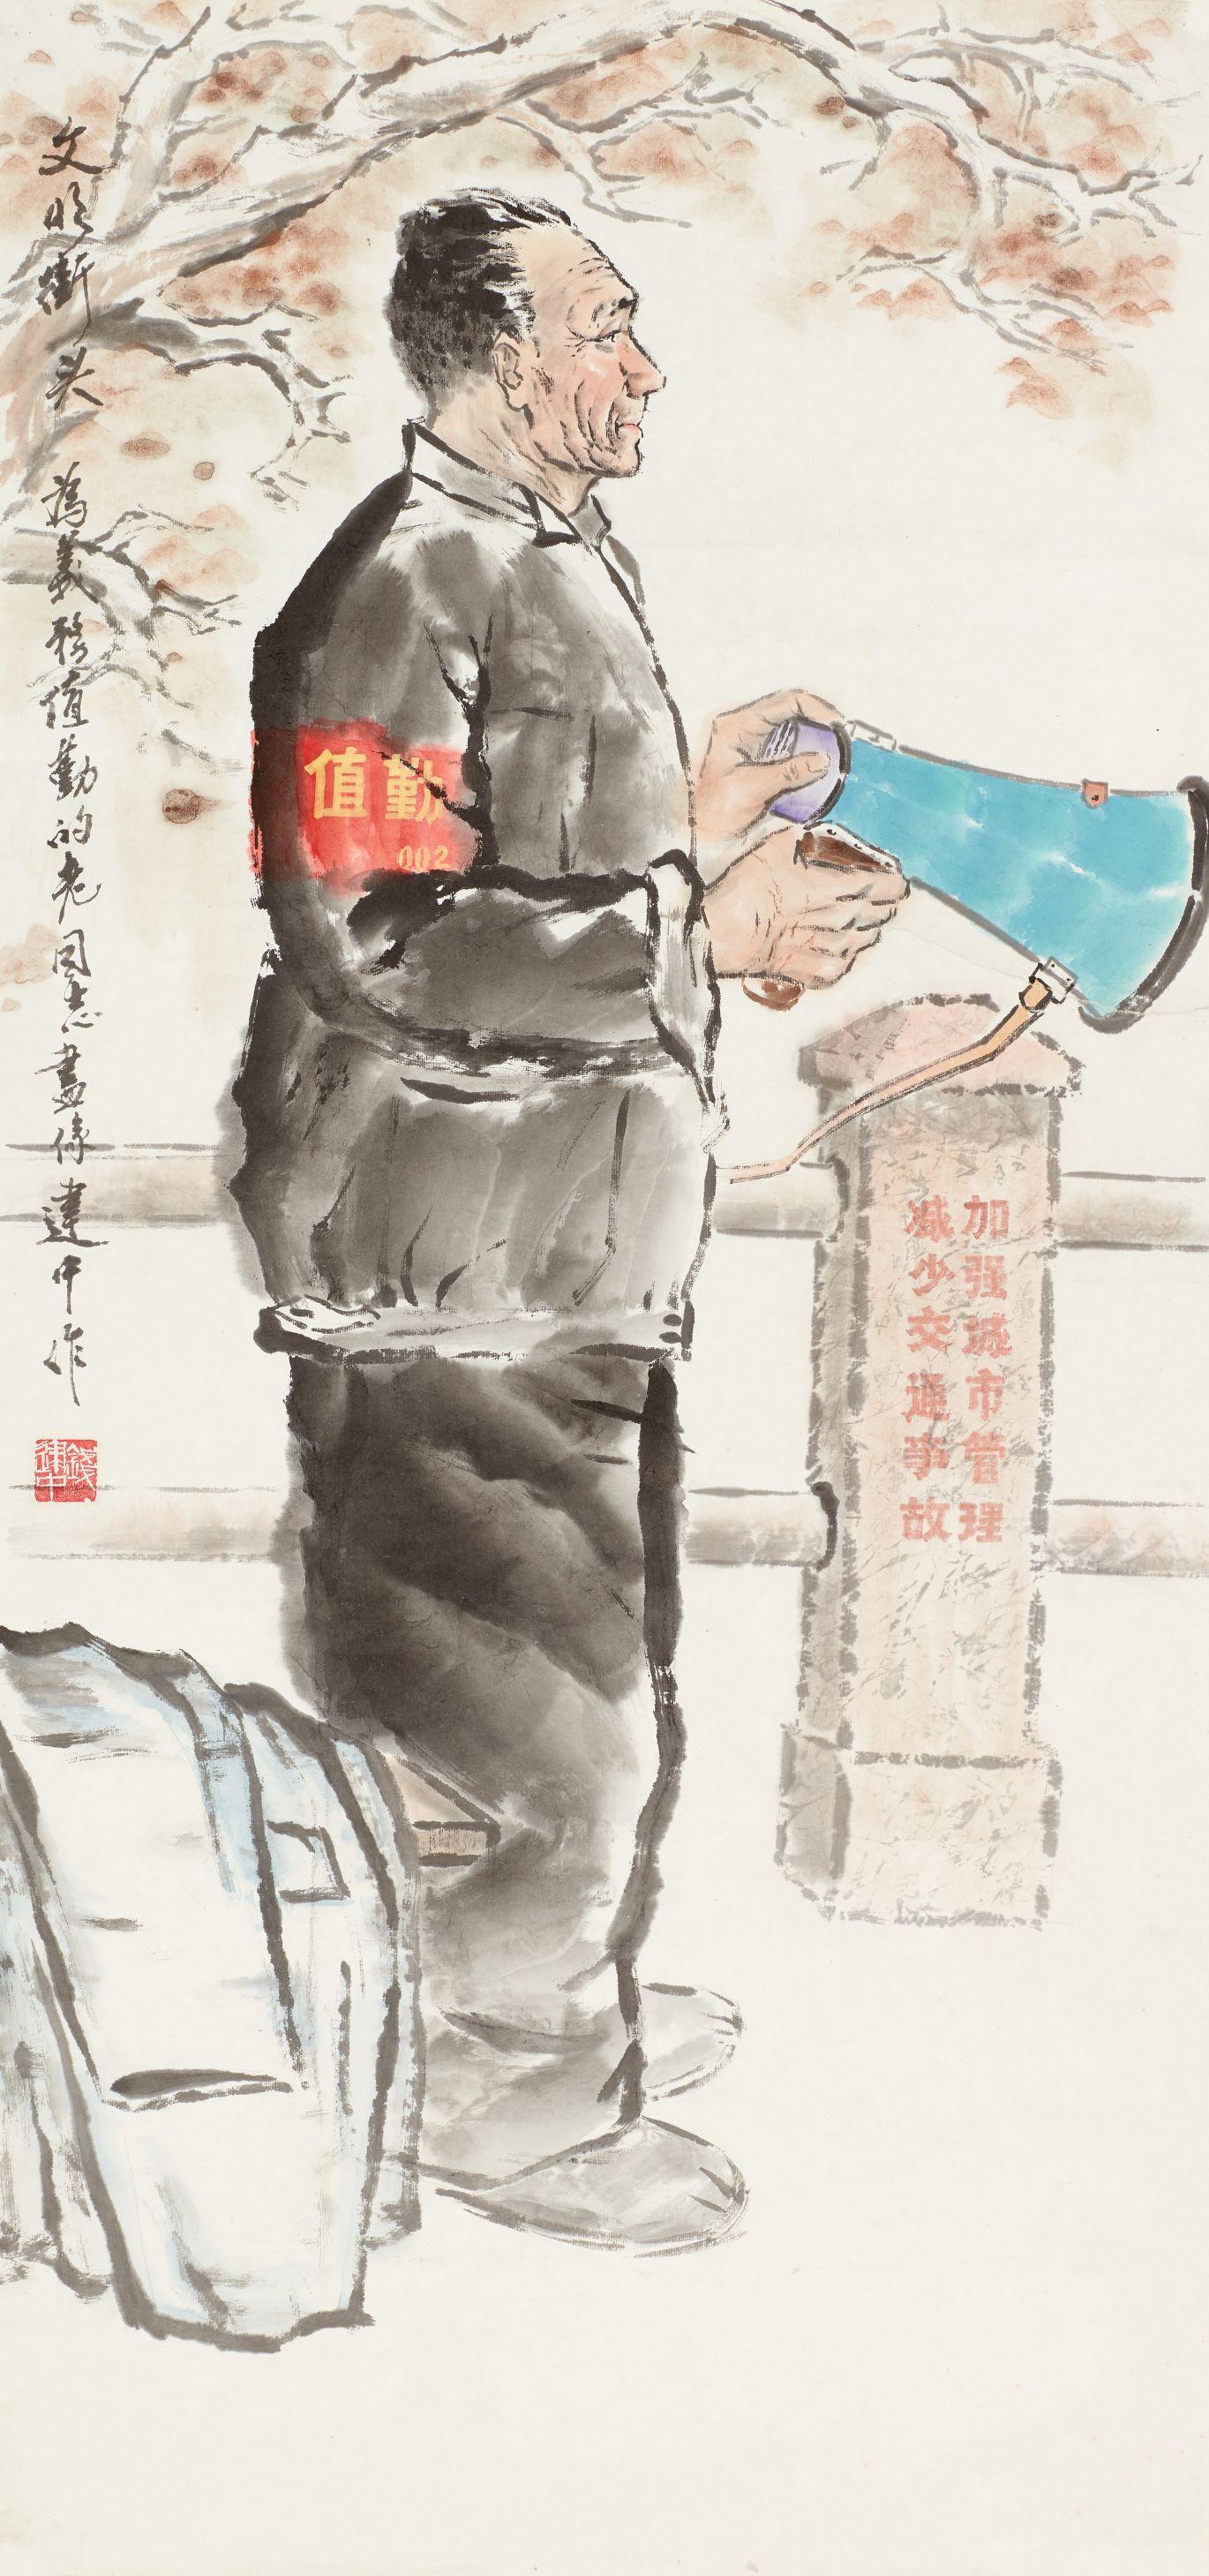 文明街头
为義務值勤的老同志畫像建中作
錢建中
值勤
002
加强城市管理
减少交通事故